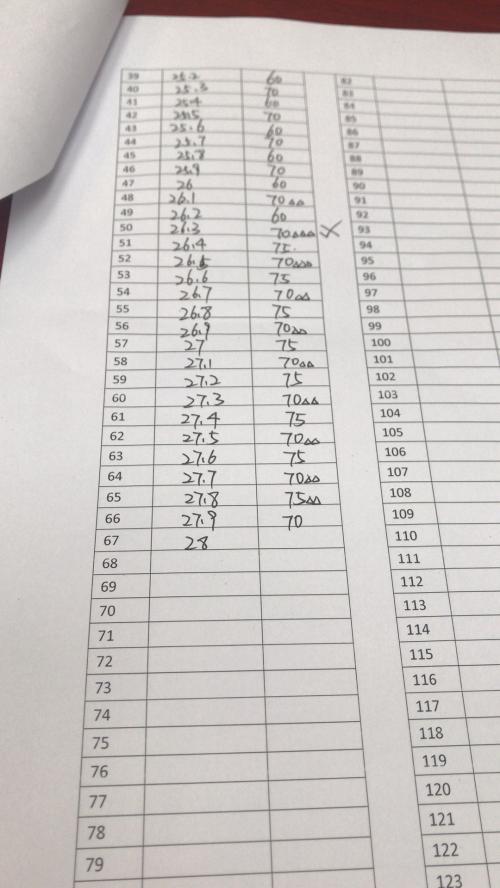 39 25.2 60 82
40 25.3 70 83
41 25.4 60 84
42 25.5 70 85
43 25.6 60 86
44 25.7 70 87
45 25.8 60 88
46 25.9 70 89
47 26 60 90
48 26.1 70△△ 91
49 26.2 60 92
50 26.3 70△△△ × 93
51 26.4 75. 94
52 26.5 70△△△ 95
53 26.6 75 96
54 26.7 70△△ 97
55 26.8 75 98
56 26.9 70△△ 99
57 27 75 100
58 27.1 70△△ 101
59 27.2 75 102
60 27.3 70△△ 103
61 27.4 75 104
62 27.5 70△△ 105
63 27.6 75 106
64 27.7 70△△ 107
65 27.8 75△△ 108
66 27.9 70 109
67 28 110
68 111
69 112
70 113
71 114
72 115
73 116
74 117
75 118
76 119
77 120
78 121
79 122
123